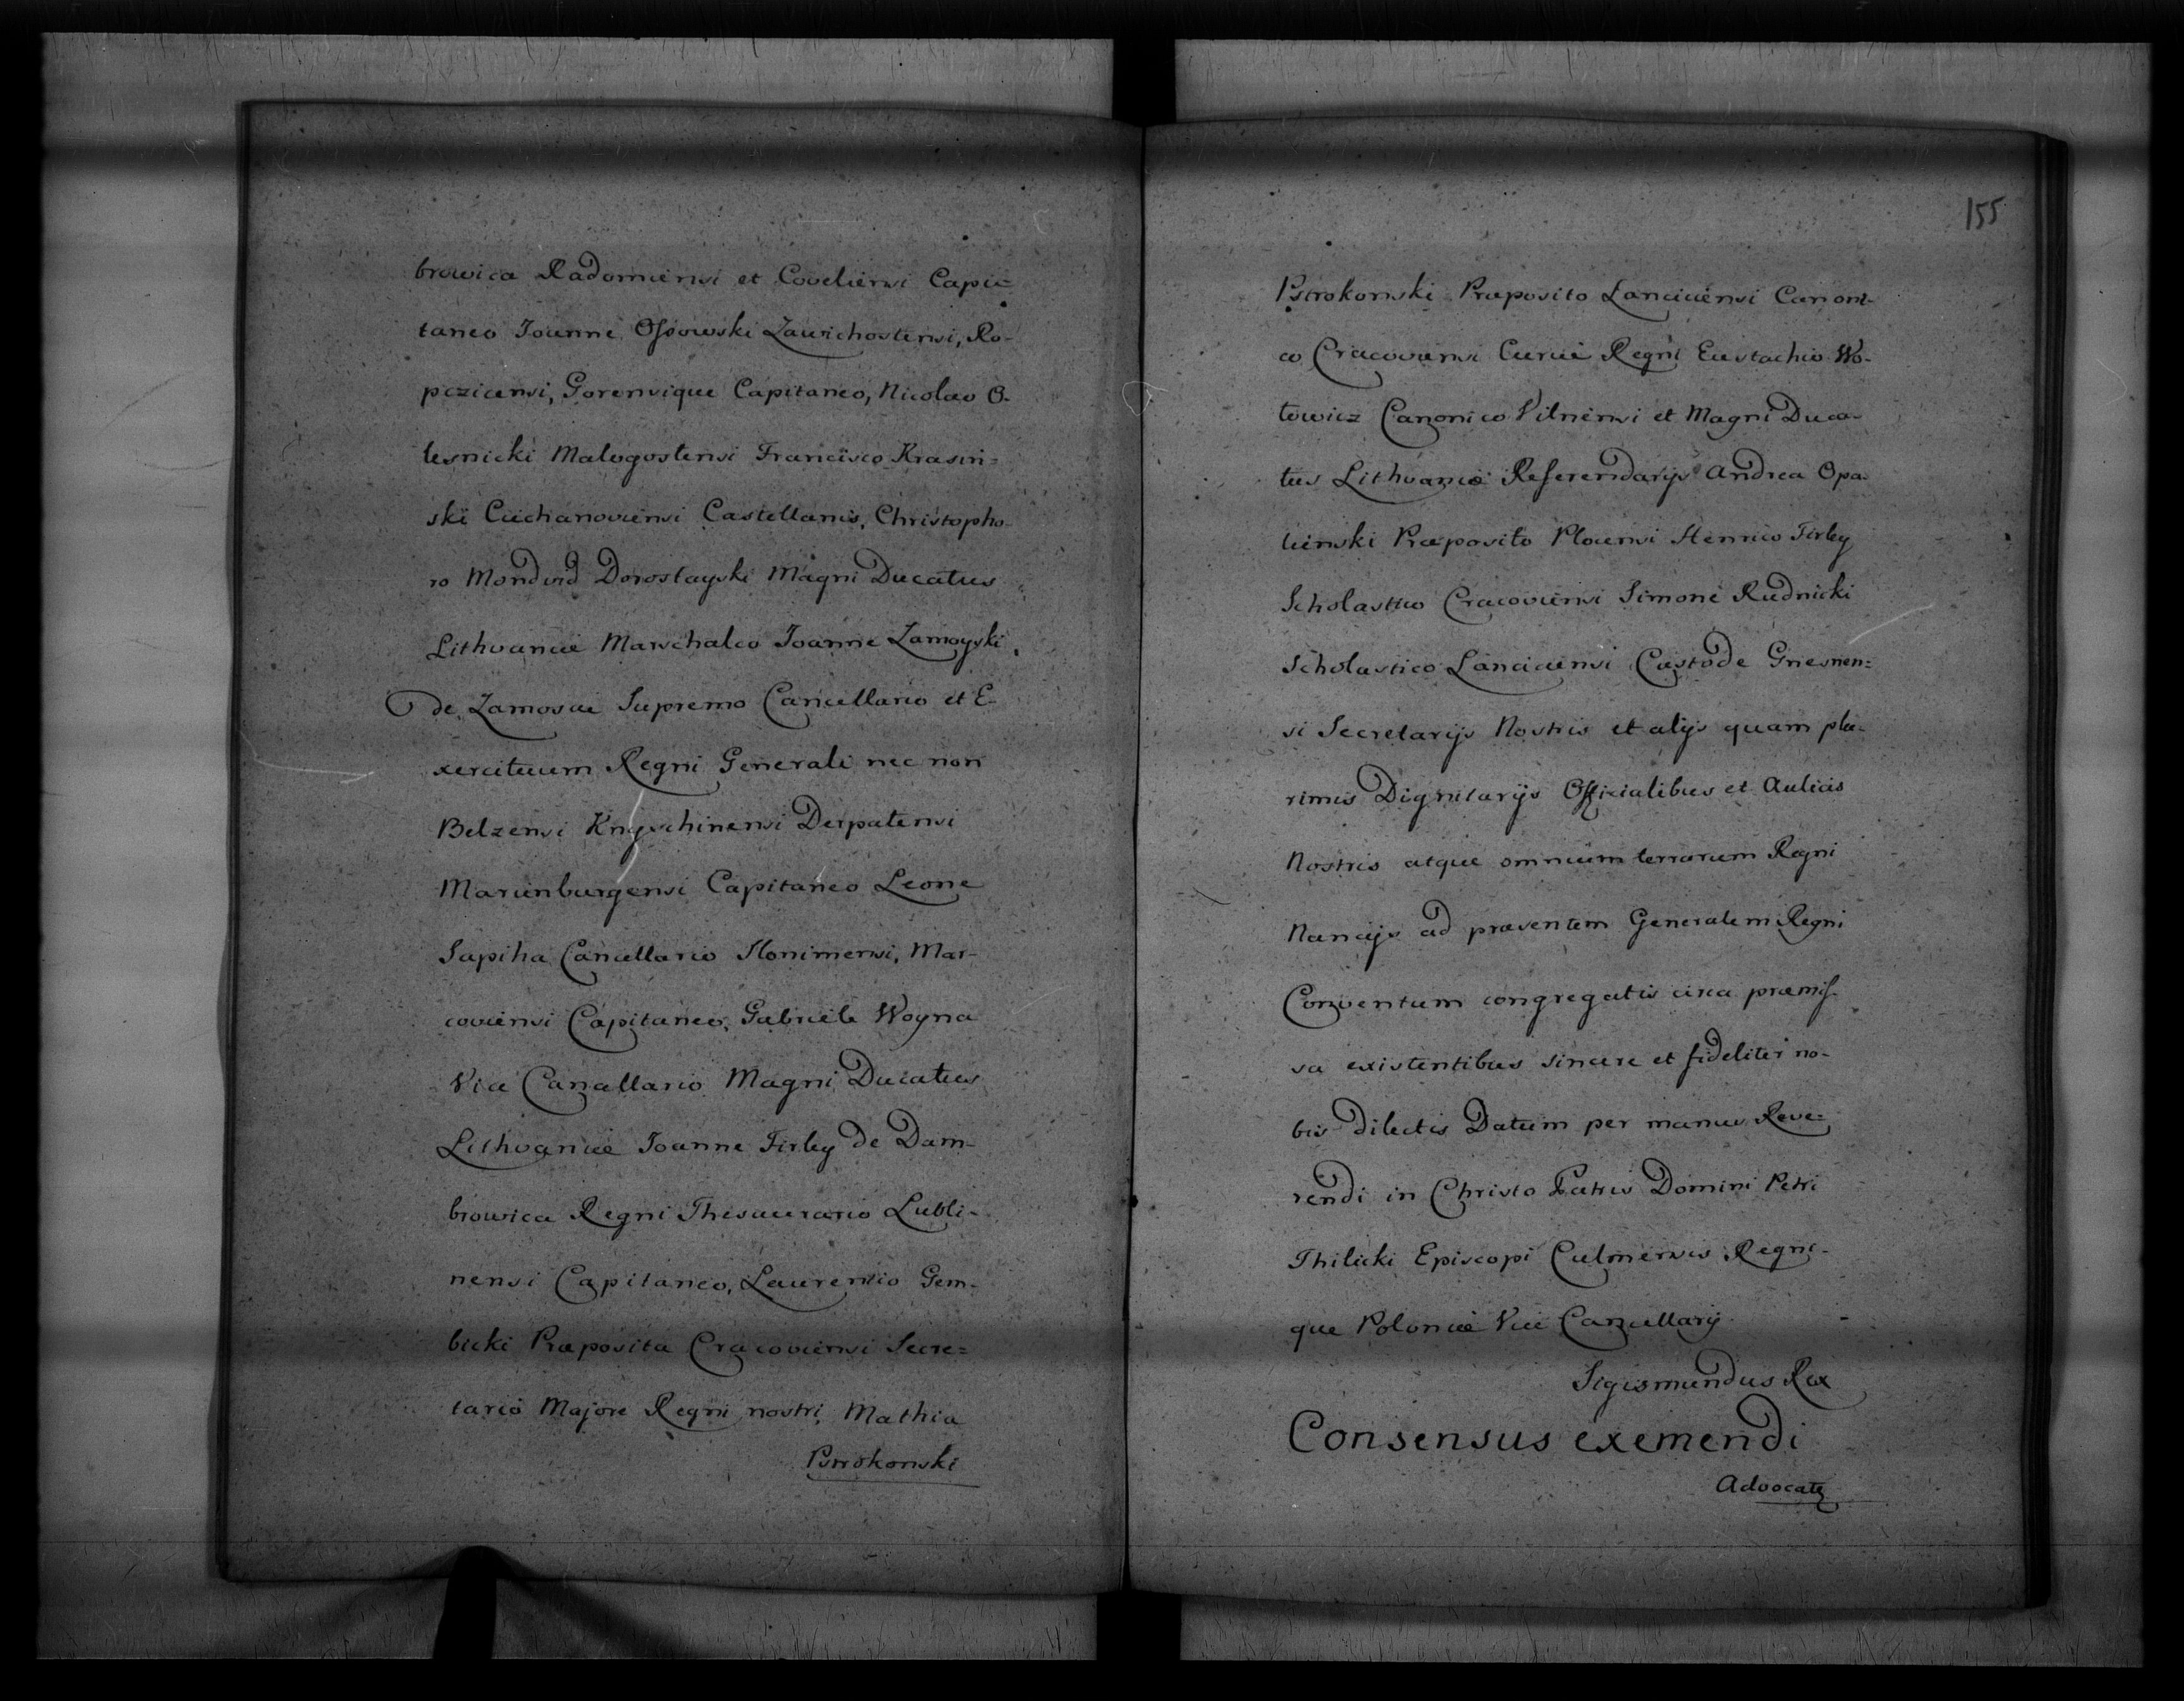 browica Radomiensi et Coveliensi Capi=
taneo Joanne Ossowski Zawichostensi, Ro-
pczicensi, Gorensique Capitaneo, Nicolao O-
lesnicki Malogostensi Francisco Krasin=
ski Ciechanoviensi Castellanis, Christopho-
ro Mondvid Dorostayski Magni Ducatus
Lithvaniæ Marschalco Joanne Zamoyski
de Zamoscie Supremo Cancellario et E-
xercituum Regni Generali nec non
Belzensi Knyschinensi Derpatensi
Marienburgensi Capitaneo Leone
Sapiha Cancellario Slonimensi, Mar-
coviensi Capitaneo, Gabriele Woyna
Vice Cancellario Magni Ducatus
Lithvaniæ Joanne Firley de Dam-
browica Regni Thesaurario Lubli-
nensi Capitaneo, Laurentio Gem-
bicki Præposita Cracoviensi Secre=
tario Majore Regni nostri, Mathia
Pstrokonski
155
Pstrokonski Præposito Lanciciensi Canoni-
co Cracoviensi Curiæ Regni Eustachio Wo-
towicz Canonico Vilnensi et Magni Duca-
tus Lithvaniæ Referendarijs Andrea Opa-
lienski Præposito Plocensi Henrico Firley
Scholastico Cracoviensi Simone Rudnicki
Scholastico Lanciciensi Custode Gnesnen=
si Secretarijs Nostris et alijs quam plu-
rimis Dignitarijs Officialibus et Aulicis
Nostris atque omnium terrarum Regni
Nuncijs ad præsentem Generalem Regni
Conventum congregatis circa præmis-
sa existentibus sincere et fideliter no-
bis dilectis Datum per manus Reve=
rendi in Christo Patris Domini Petri
Thilicki Episcopi Culmensis Regni-
que Poloniæ Vice Cancellarij
Sigismundus Rex
Consensus exemendi
Advocatę